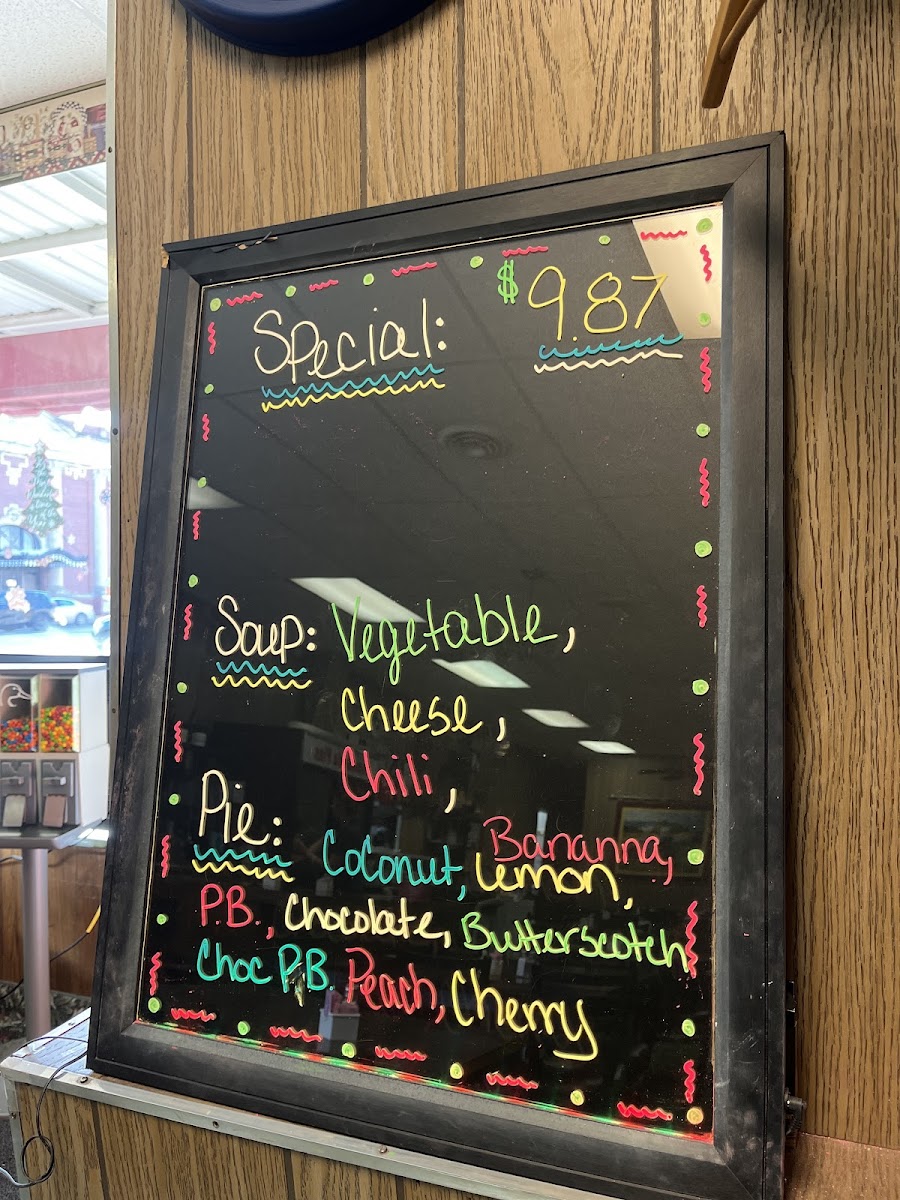 Special: $9.87
Soup: Vegetable,
Cheese,
Chili,
Pie: Bananna,
Coconut, Lemon,
P.B., Chocolate, Butterscotch
Choc P.B. Peach, Cherry